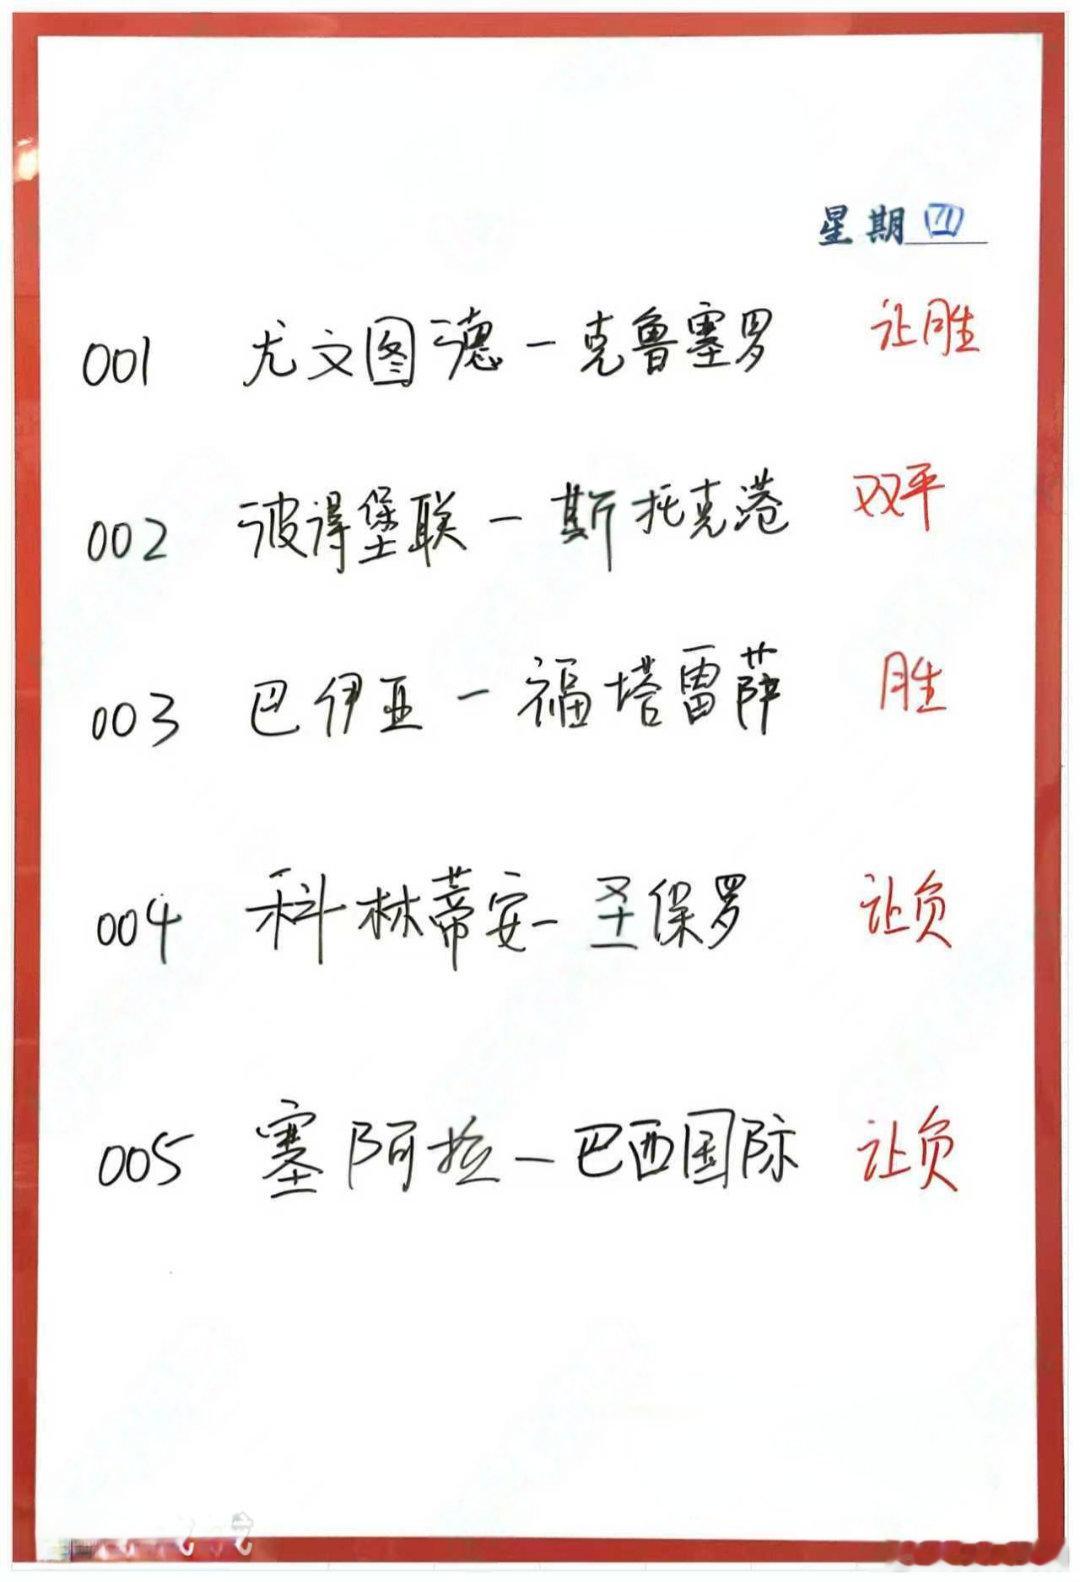 星期四
001 尤文图德一克鲁塞罗 让胜
002 彼得堡联一斯托克港 双平
003 巴伊亚一福塔雷萨 胜
004 科林蒂安一圣保罗 让负
005 塞阿拉一巴西国际 让负